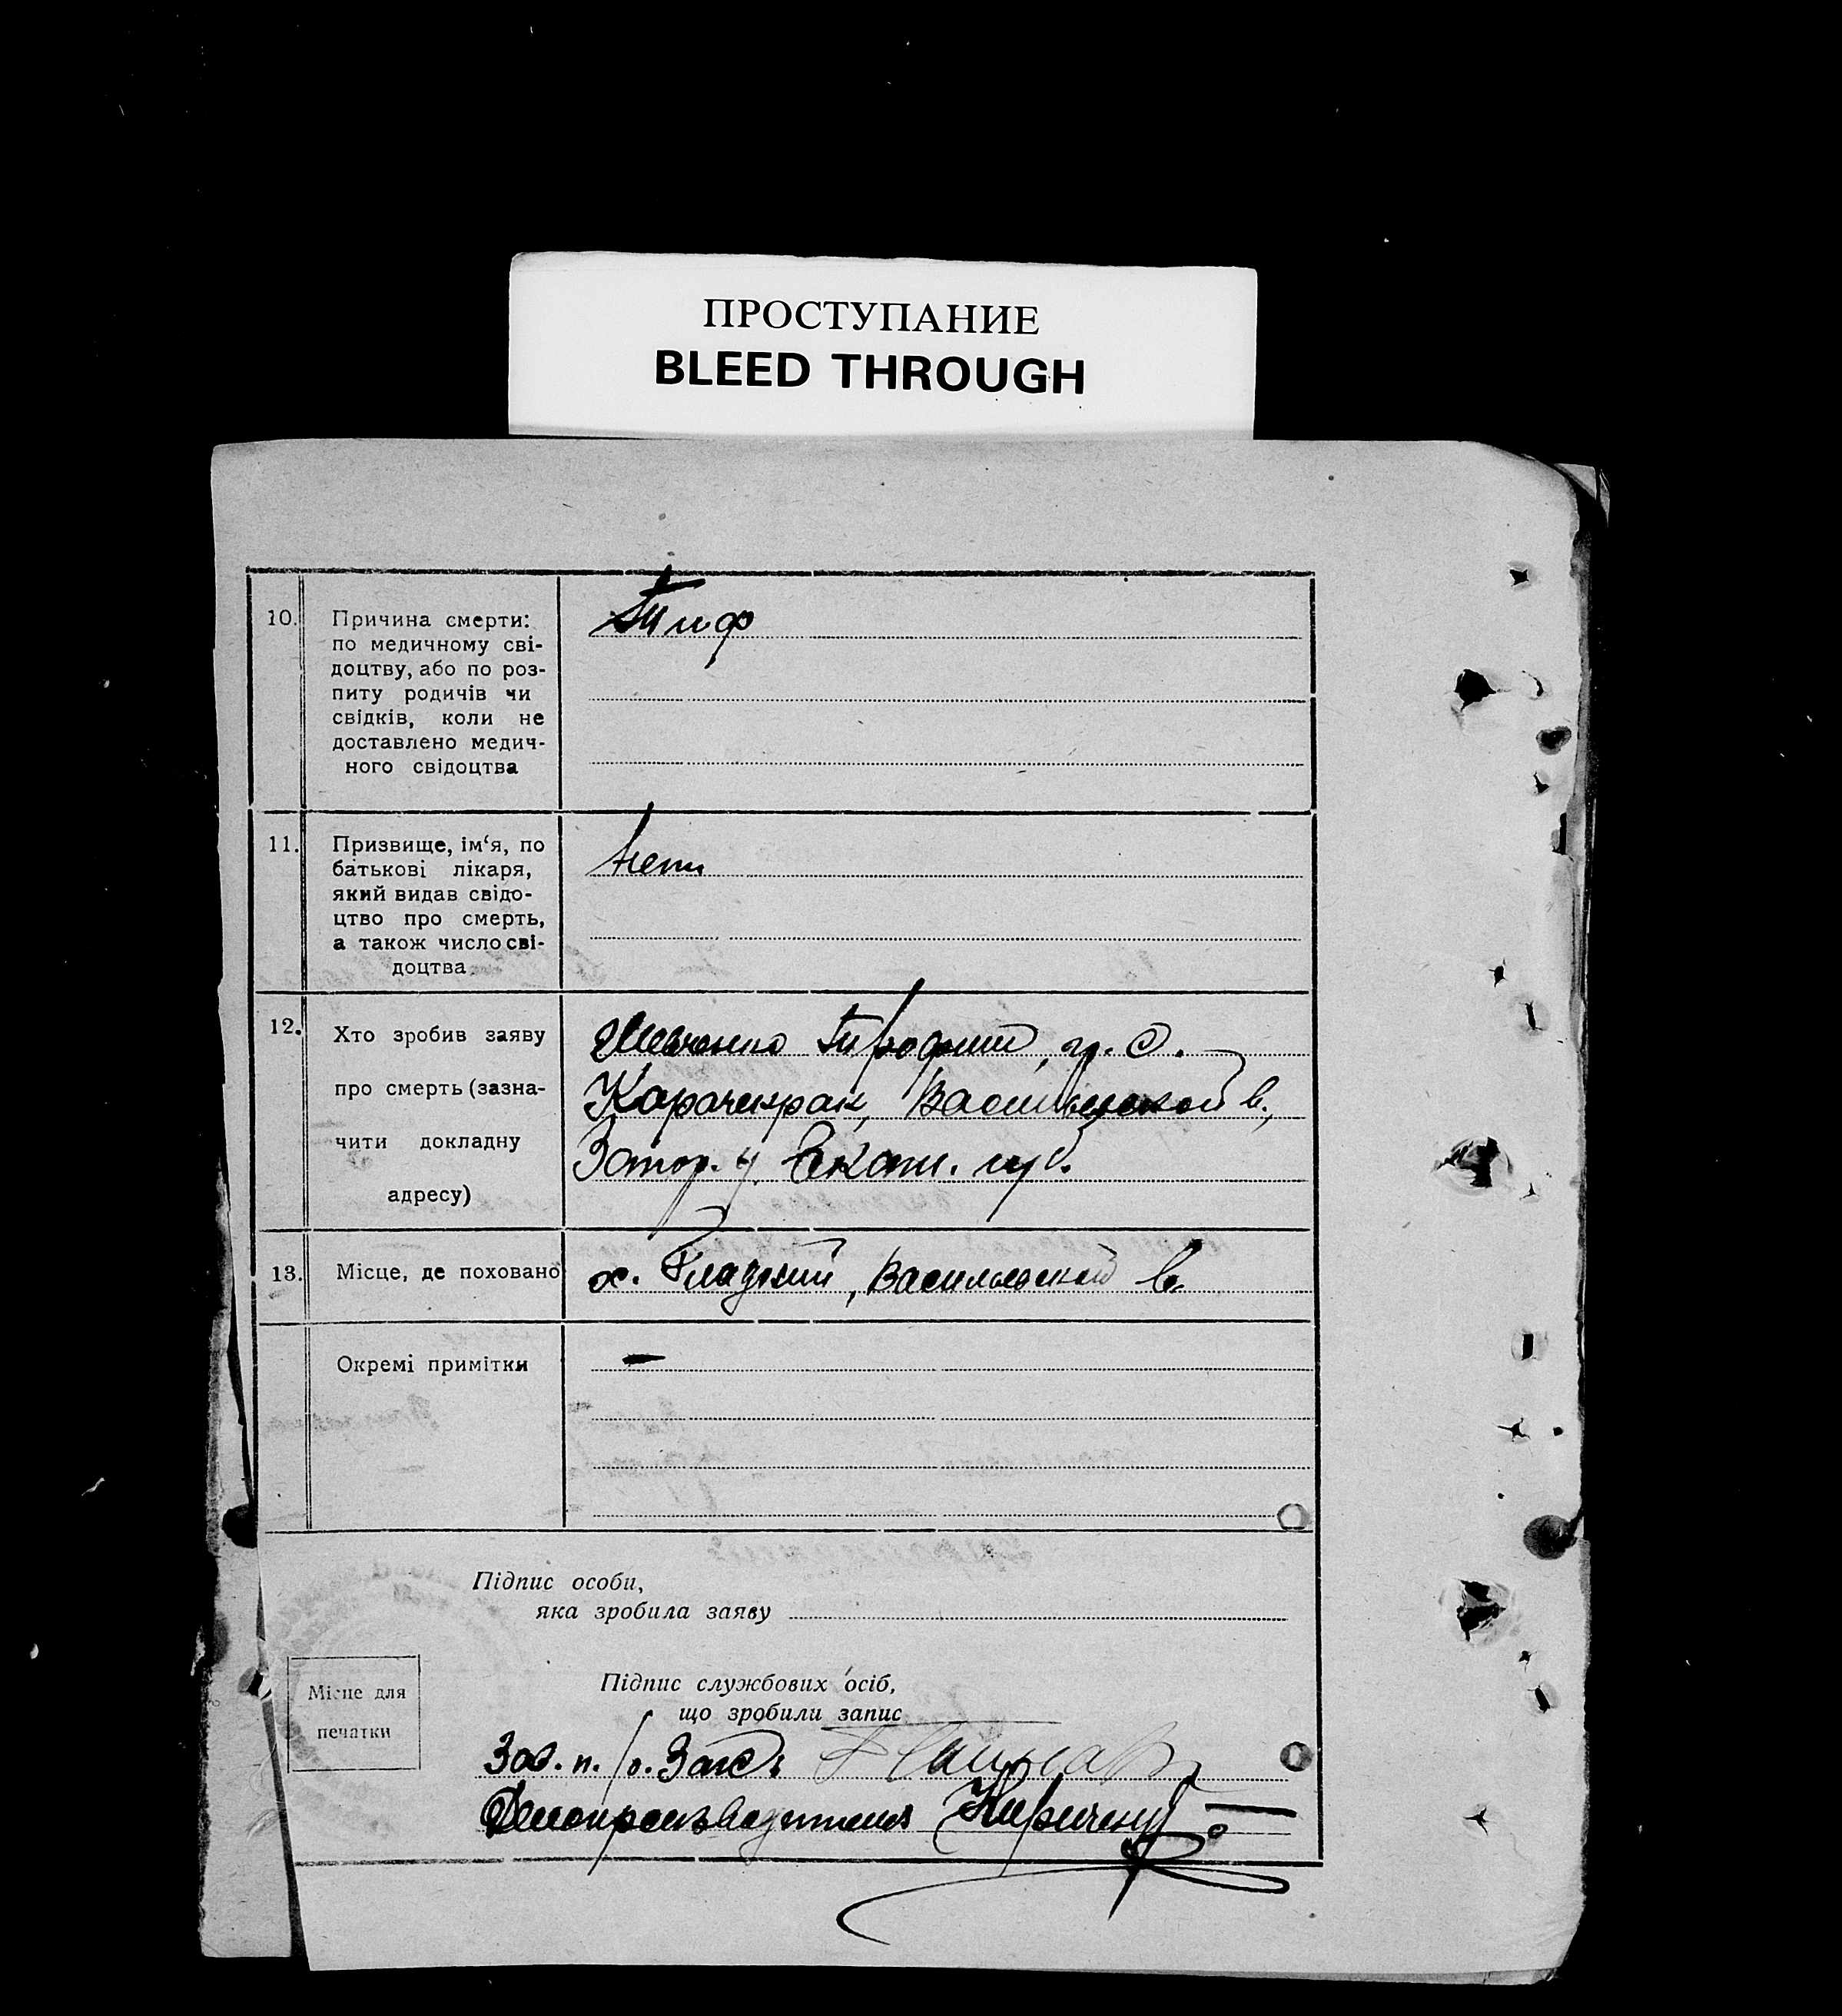 ПРОСТУПАНИЕ
BLEED THROUGH
10. Причина смерти:
по медичному сві-
доцтву, або по роз-
питу родичів чи
свідків, коли не
доставлено медич-
ного свідоцтва
Тиф
11. Призвище, ім‘я, по
батькові лікаря,
який видав свідо-
цтво про смерть,
а також число сві-
доцтва.
нет
12. Хто зробив заяву
про смерть (зазна-
чити докладну
адресу)
Шевченко Трофим, гр. с.
Карачекрак, Васильевской в.,
Запор. у. Екат. губ.
13. Місце, де поховано
х. Гладкий, Васильевской в.
Окремі примітки
—
Підпис особи,
яка зробила заяву
Місце для
печатки
Підпис службових осіб,
що зробили запис
Зав. п./о. Загс
Делопроизводитель Кириченко